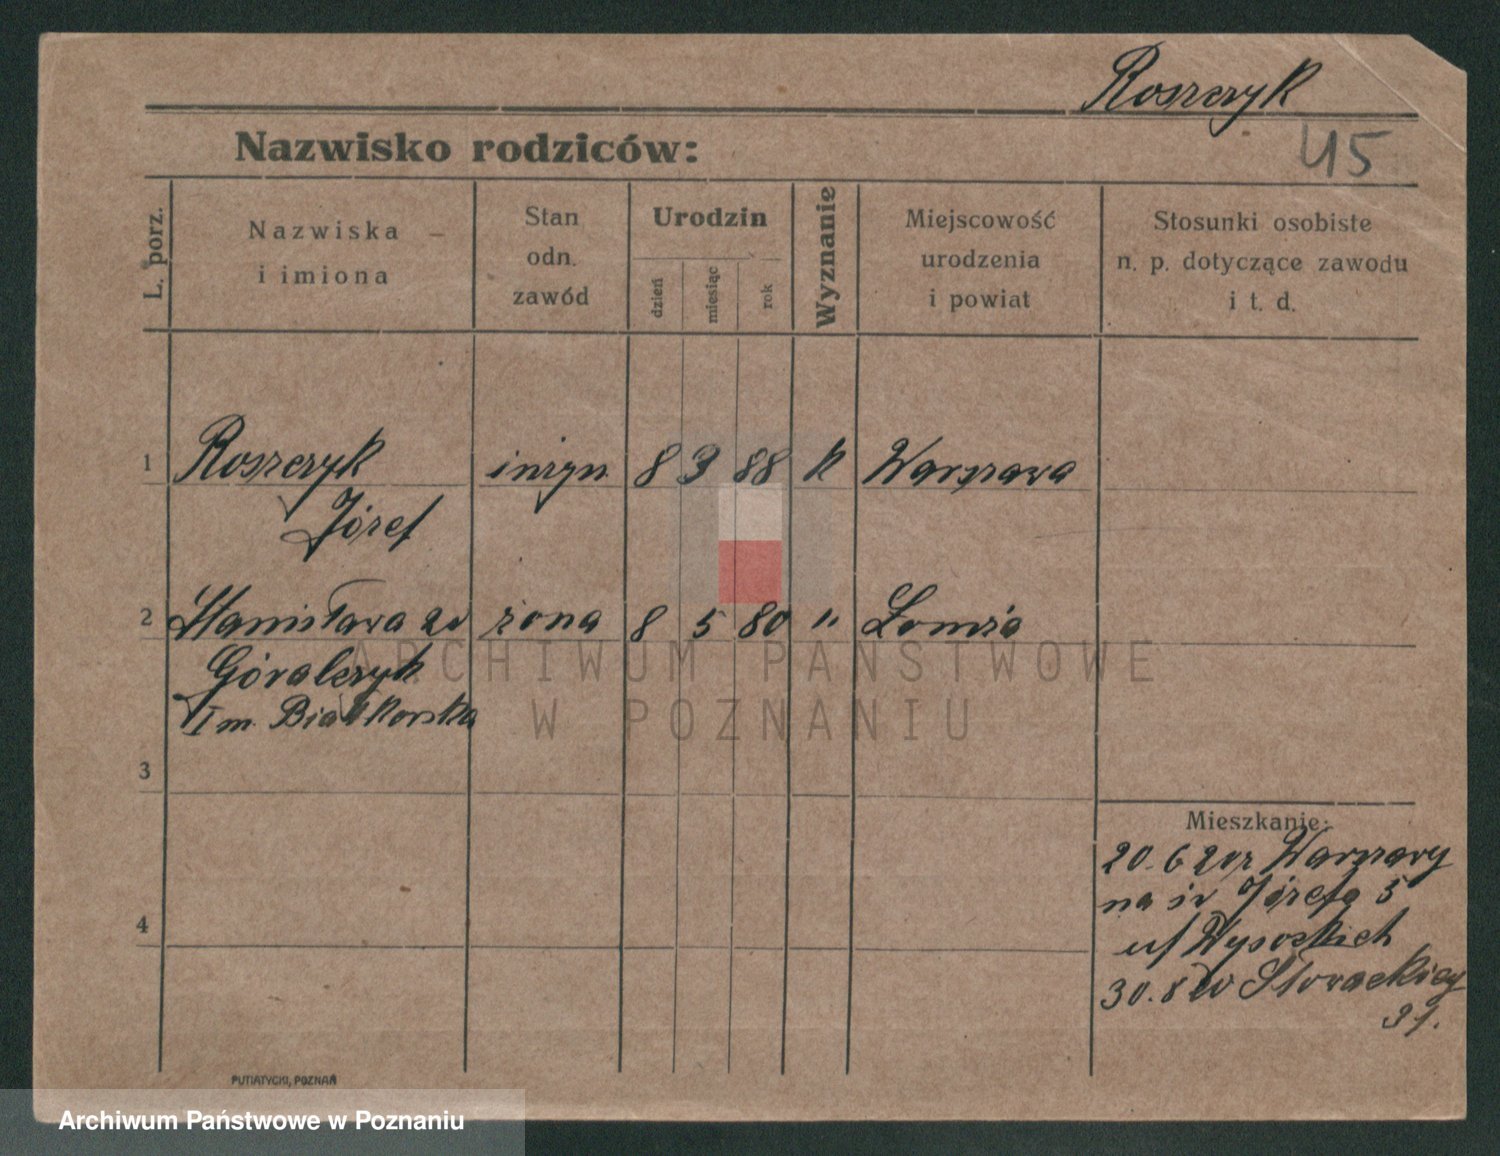 Roszczyk
45
Nazwisko rodziców:
L. porz.
Nazwiska
i imiona
Stan
odn.
zawód
Urodzin
dzień
miesiąc
rok
Wyznanie
Miejscowość
urodzenia
i powiat
Stosunki osobiste
n. p. dotyczące zawodu
i t. d.
1 Roszczyk inżyn 8 3 88 k Warszawa
Józef
2 Stanisława żona 8 5 80 " Łomża
Góralczyk
I m. Białkorska
ARCHIWUM PAŃSTWOWE
W POZNANIU
3
Mieszkanie:
20. 6 20 z Warszawy
na św Józefa 5
u/ Wysockich
4
30. 8 20 Słowackiego
31.
PUTIATYCKI, POZNAŃ
Archiwum Państwowe w Poznaniu